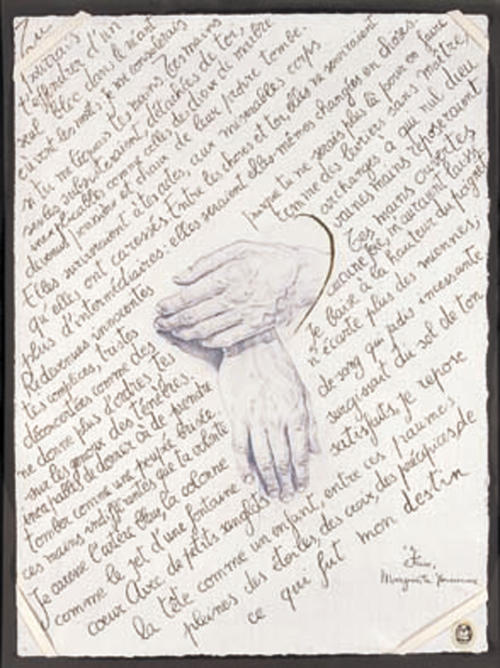 Tu
pourrais
t'effondrer d'un
seul bloc dans le néant
où vont les morts: je me consolerais
si tu me léguais tes mains. Tes mains
seules subsisteraient, détachées de toi,
inexplicables comme celles des dieux de marbre
devenus poussière et chaux de leur propre tombe.
Elles survivraient à tes actes, aux misérables corps
qu'elles ont caressés. Entre les choses et toi, elles ne serviraient
plus d'intermédiaires: elles seraient elles-mêmes changées en choses.
Redevenues innocentes
puisque tu ne serais plus là pour en faire
tes complices, tristes
comme des lévriers sans maître,
déconcertées comme des
archanges à qui nul dieu
ne donne plus d'ordres, tes
vaines mains reposeraient
sur les genoux des ténèbres.
Tes mains ouvertes
incapables de donner ou de prendre
aucune joie, m'auraient laissé
tomber comme une poupée brisée.
Je baise à la hauteur du poignet
ces mains indifférentes que ta volonté
n'écarte plus des miennes;
je caresse l'artère bleue, la colonne
de sang qui jadis incessante
comme le jet d'une fontaine
surgissait du sol de ton
cœur. Avec de petits sanglots
satisfaits, je repose
la tête comme un enfant, entre ces paumes
pleines des étoiles, des croix, des précipices de
ce qui fut mon destin
"Feux"
Marguerite Yourcenar